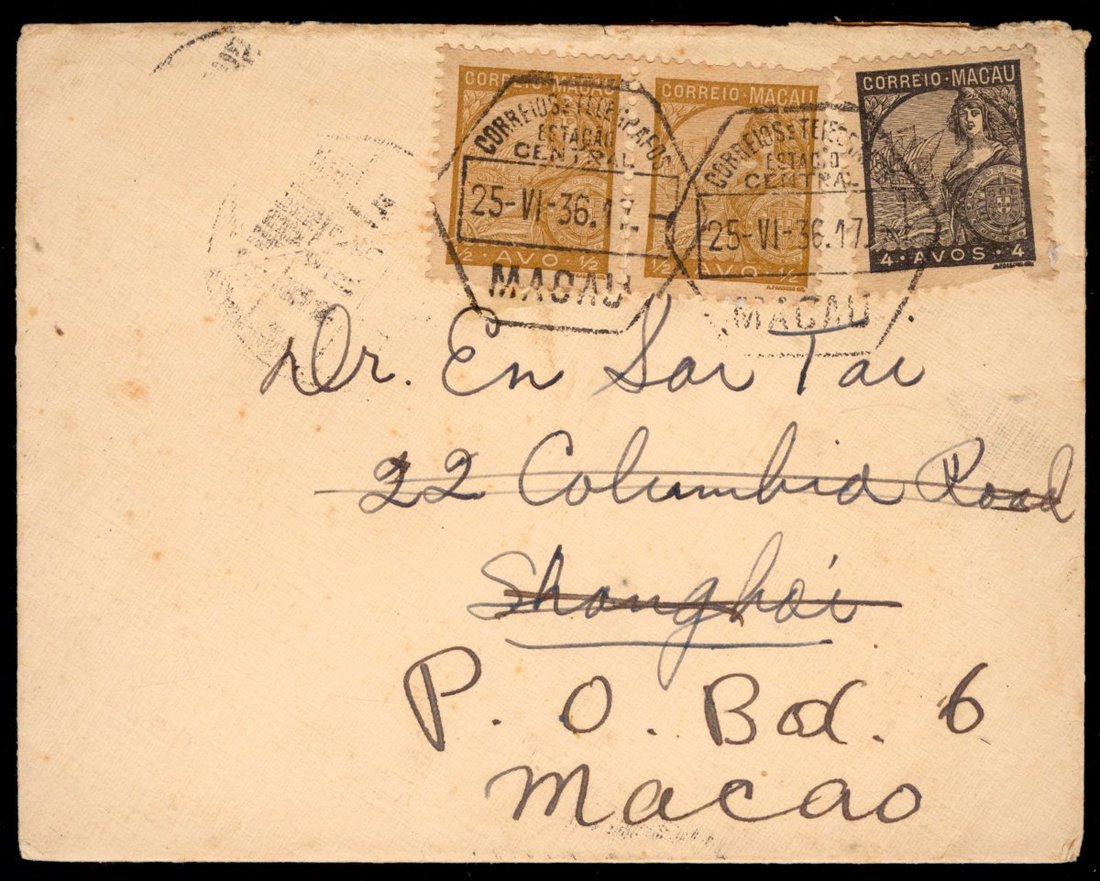 CORREIO · MACAU
½ AVO ½
CORREIO · MACAU
½ AVO ½
CORREIO · MACAU
4 · AVOS · 4
CORREIOS E TELEGRAFOS
ESTAÇÃO
CENTRAL
25-VI-36.17
MACAU
CORREIOS E
ESTAÇÃO
CENTRAL
25-VI-36.17
MACAU
Dr. En Sai Tai
22 Columbia Road
Shanghai
P. O. Box. 6
Macao